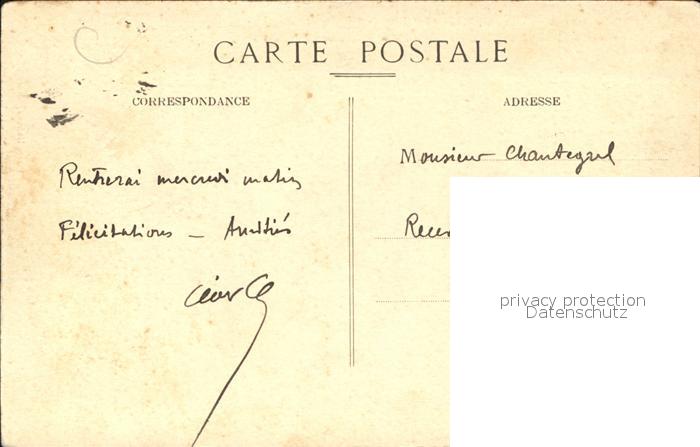 CARTE POSTALE
CORRESPONDANCE
ADRESSE
Rentrerai mercredi matin
Félicitations — Amitiés
Monsieur Chantegrel
privacy protection
Datenschutz